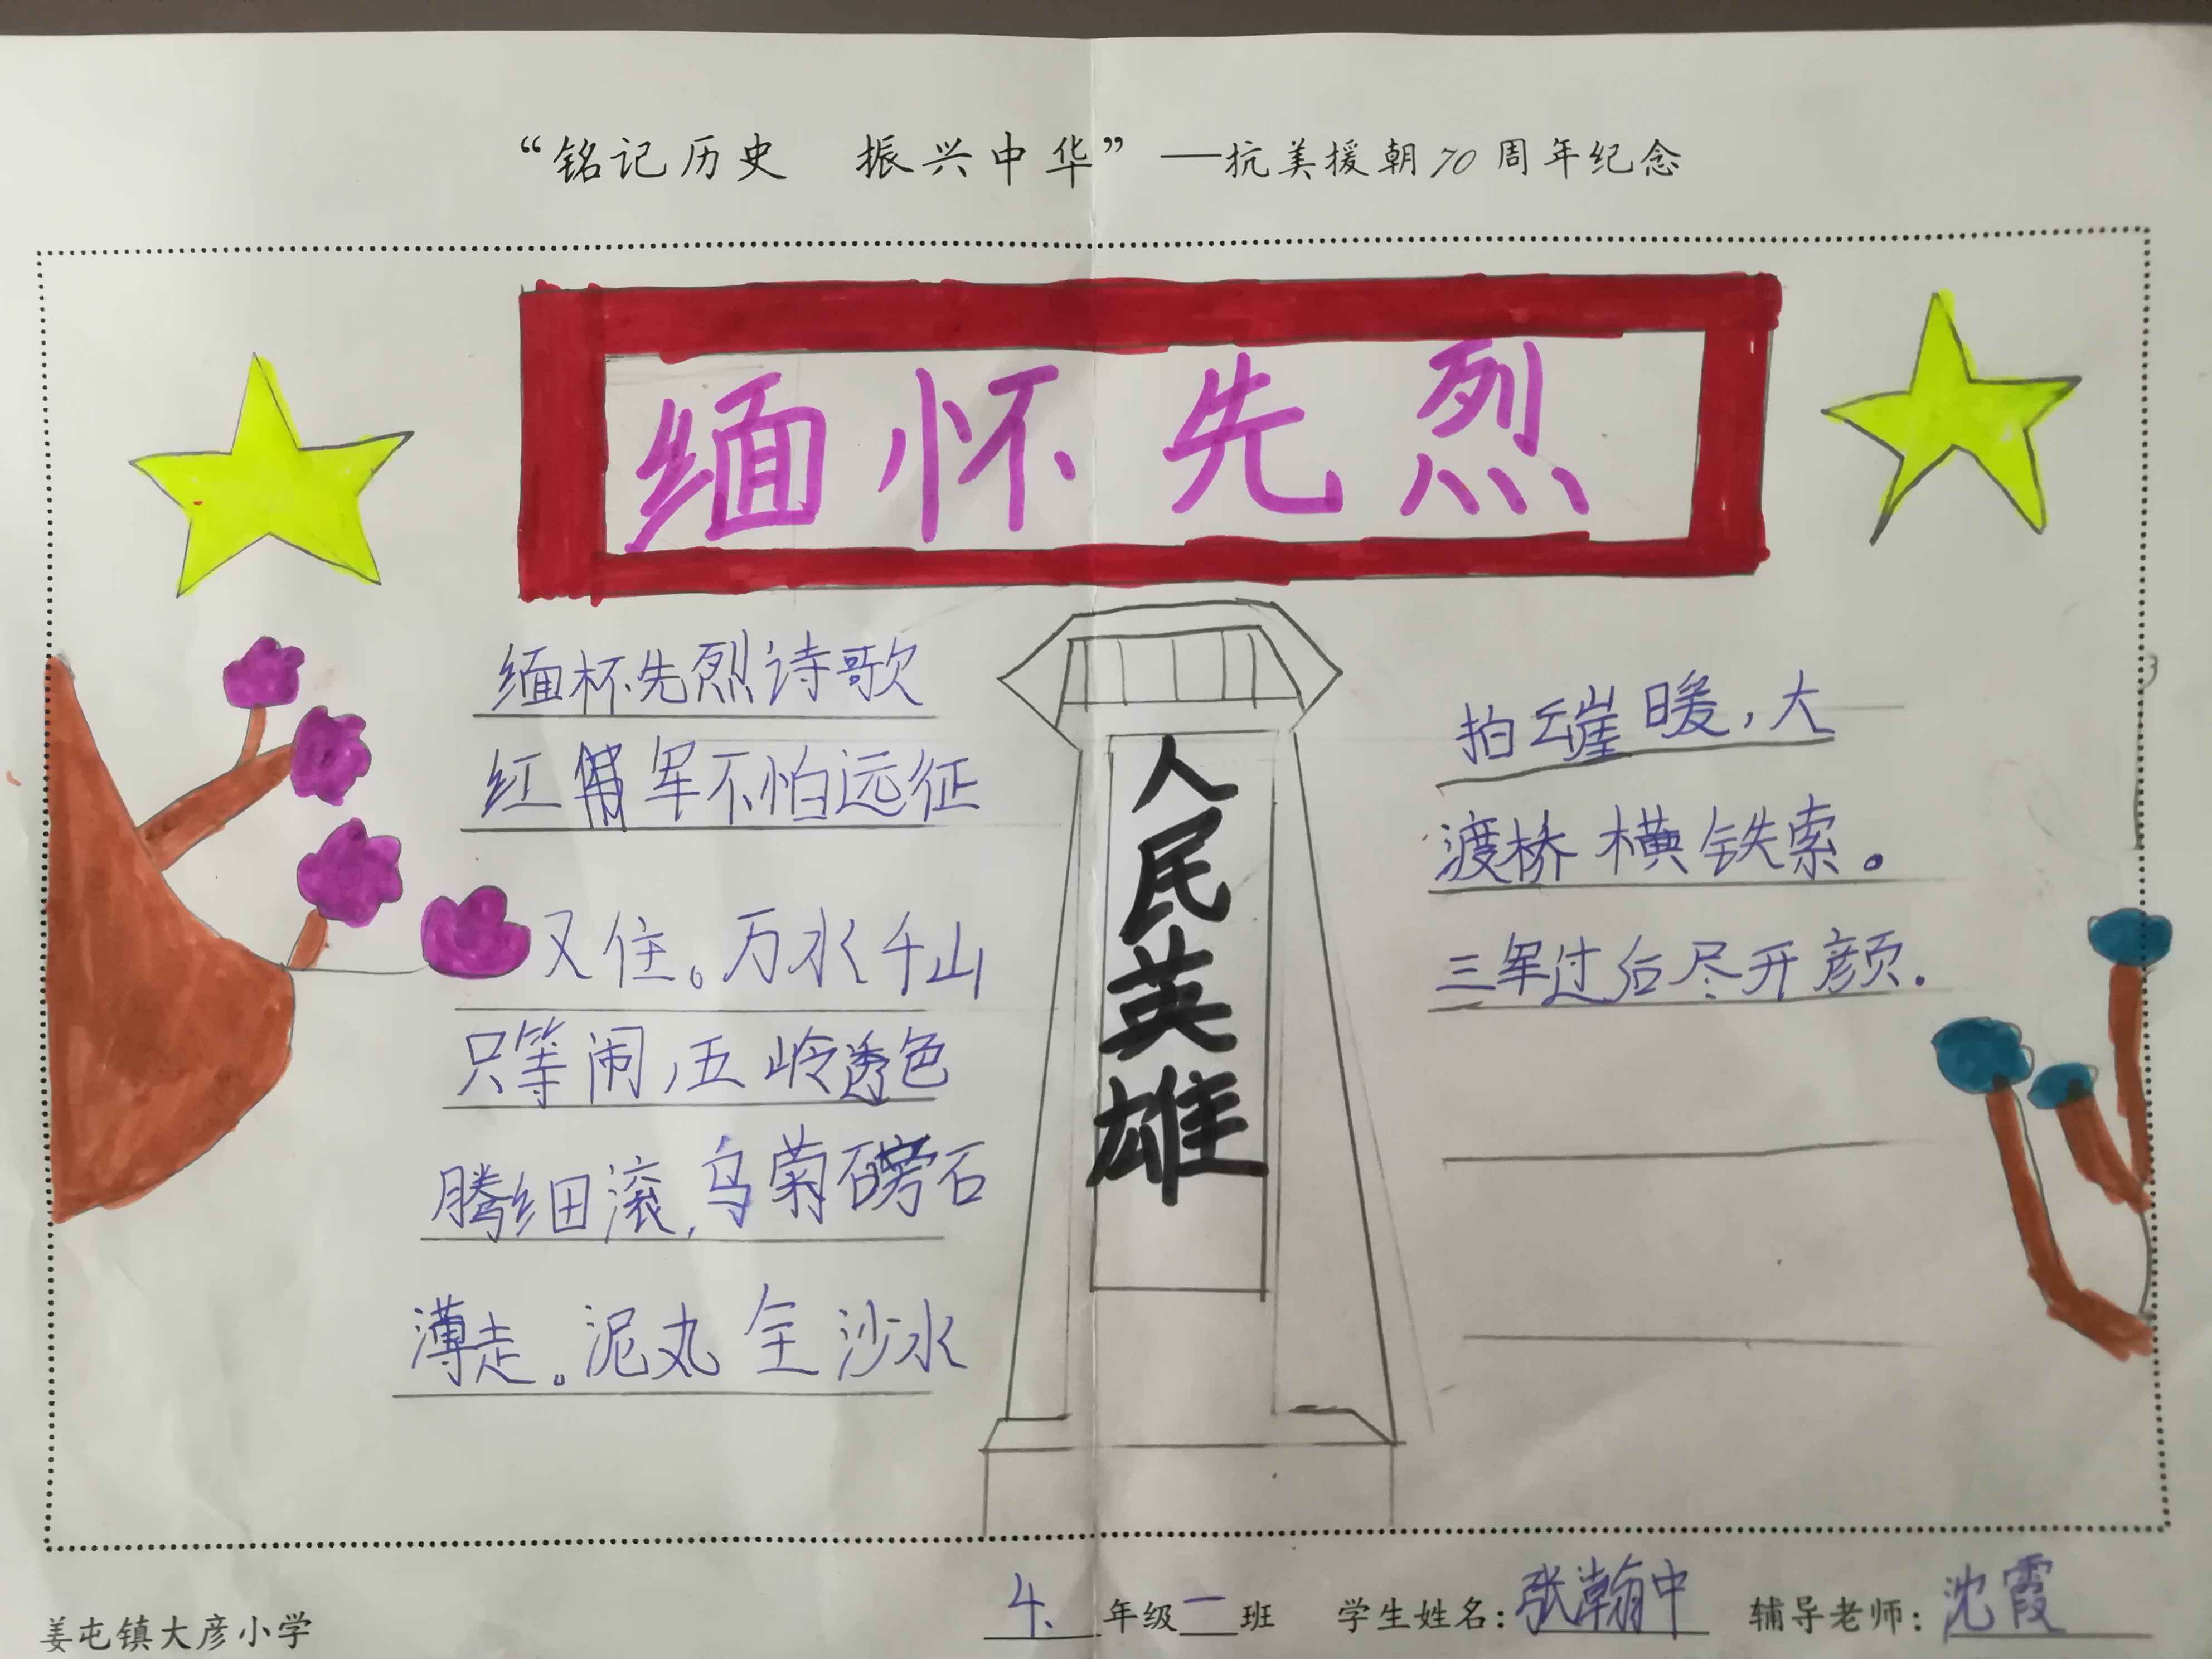 “铭记历史 振兴中华”——抗美援朝70周年纪念
缅怀先烈
缅怀先烈诗歌
红军不怕远征
又住。万水千山
只等闹,五岭透色
腾细滚,乌菊磅石
薄走。泥丸全沙水
人民英雄
拍云崖暖,大
渡桥横铁索。
三军过后尽开颜.
4.年级一班 学生姓名:张瀚中 辅导老师:沈霞
姜屯镇大彦小学